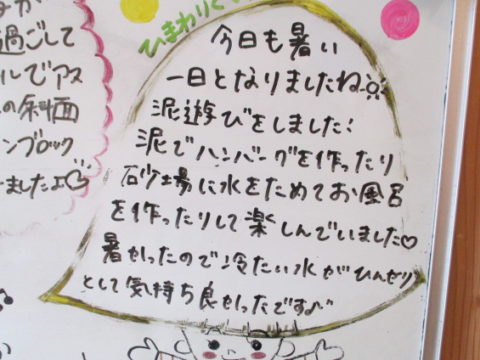 ひまわりぐ
今日も暑い
一日となりましたね
泥遊びをしました!
泥でハンバーグを作ったり
砂場に水をためてお風呂
を作ったりして楽しんでいました♡
暑かったので冷たい水がひんやり
として気持ち良かったです♪
過ごして
ルでアス
の斜面
ンブロック
ました♡